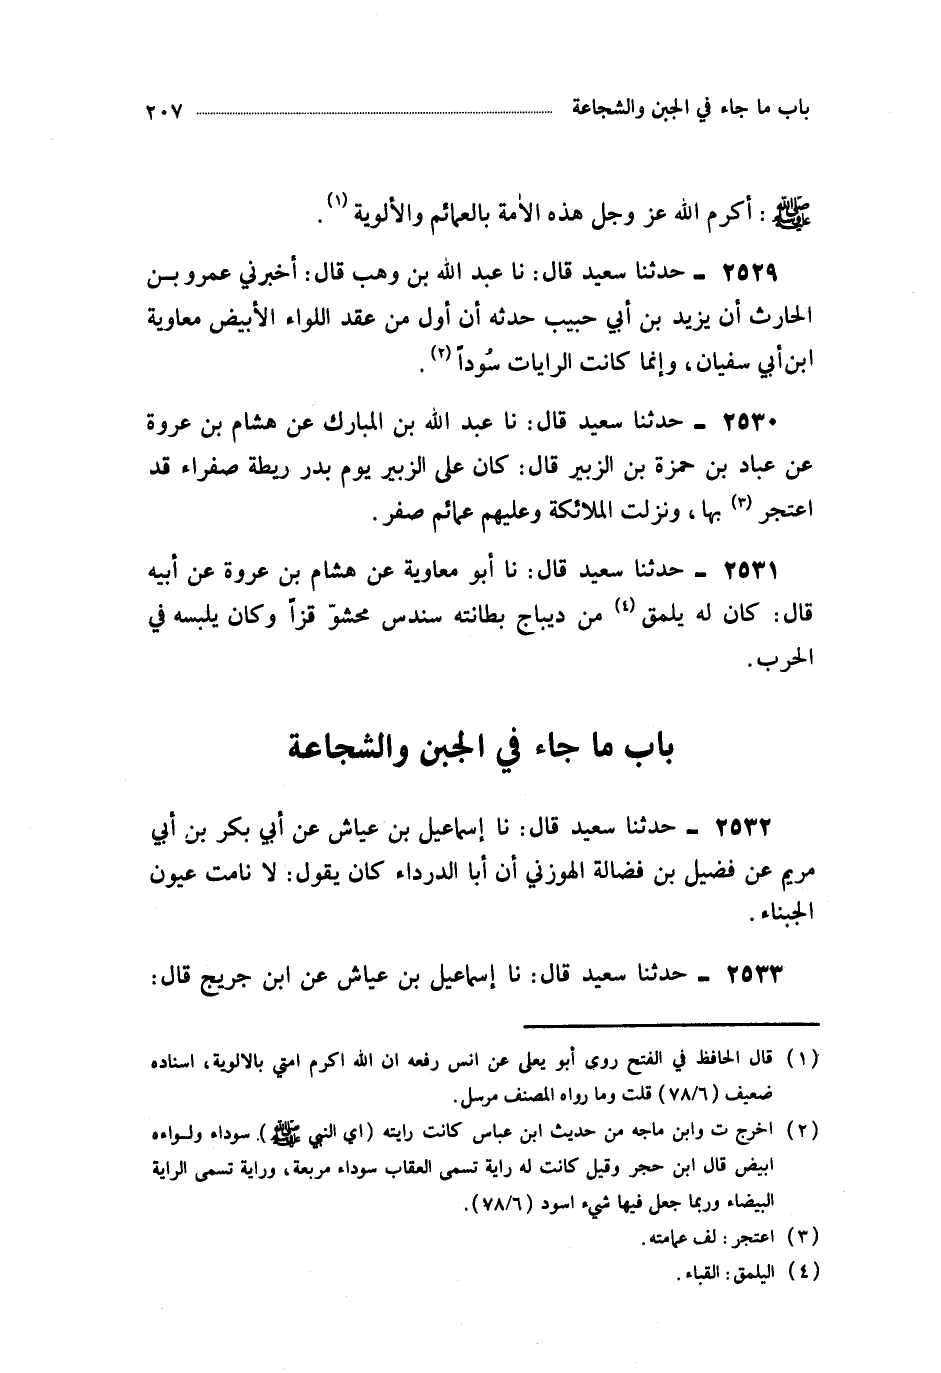 باب ما جاء في الجبن والشجاعة ........ ٢٠٧
ﷺ : أكرم الله عز وجل هذه الأمة بالعمائم والألوية (١) .
٢٥٢٩ ـ حدثنا سعيد قال : نا عبد الله بن وهب قال : أخبرني عمرو بن
الحارث أن يزيد بن أبي حبيب حدثه أن أول من عقد اللواء الأبيض معاوية
ابن أبي سفيان ، وإنما كانت الرايات سُوداً (٢) .
٢٥٣٠ ـ حدثنا سعيد قال : نا عبد الله بن المبارك عن هشام بن عروة
عن عباد بن حمزة بن الزبير قال : كان على الزبير يوم بدر ريطة صفراء قد
اعتجر (٣) بها ، ونزلت الملائكة وعليهم عمائم صفر .
٢٥٣١ ـ حدثنا سعيد قال : نا أبو معاوية عن هشام بن عروة عن أبيه
قال : كان له يلمق (٤) من ديباج بطانته سندس محشوّ قزاً وكان يلبسه في
الحرب .
باب ما جاء في الجبن والشجاعة
٢٥٣٢ ـ حدثنا سعيد قال : نا إسماعيل بن عياش عن أبي بكر بن أبي
مريم عن فضيل بن فضالة الهوزني أن أبا الدرداء كان يقول : لا نامت عيون
الجبناء .
٢٥٣٣ ـ حدثنا سعيد قال : نا إسماعيل بن عياش عن ابن جريج قال :
(١) قال الحافظ في الفتح روى أبو يعلى عن انس رفعه ان الله اكرم امتي بالالوية ، اسناده
ضعيف (٧٨/٦) قلت وما رواه المصنف مرسل .
(٢) اخرج ت وابن ماجه من حديث ابن عباس كانت رايته (اي النبي ﷺ) سوداء ولواءه
ابيض قال ابن حجر وقيل كانت له راية تسمى العقاب سوداء مربعة ، وراية تسمى الراية
البيضاء وربما جعل فيها شيء اسود (٧٨/٦) .
(٣) اعتجر : لف عمامته .
(٤) اليلمق : القباء .